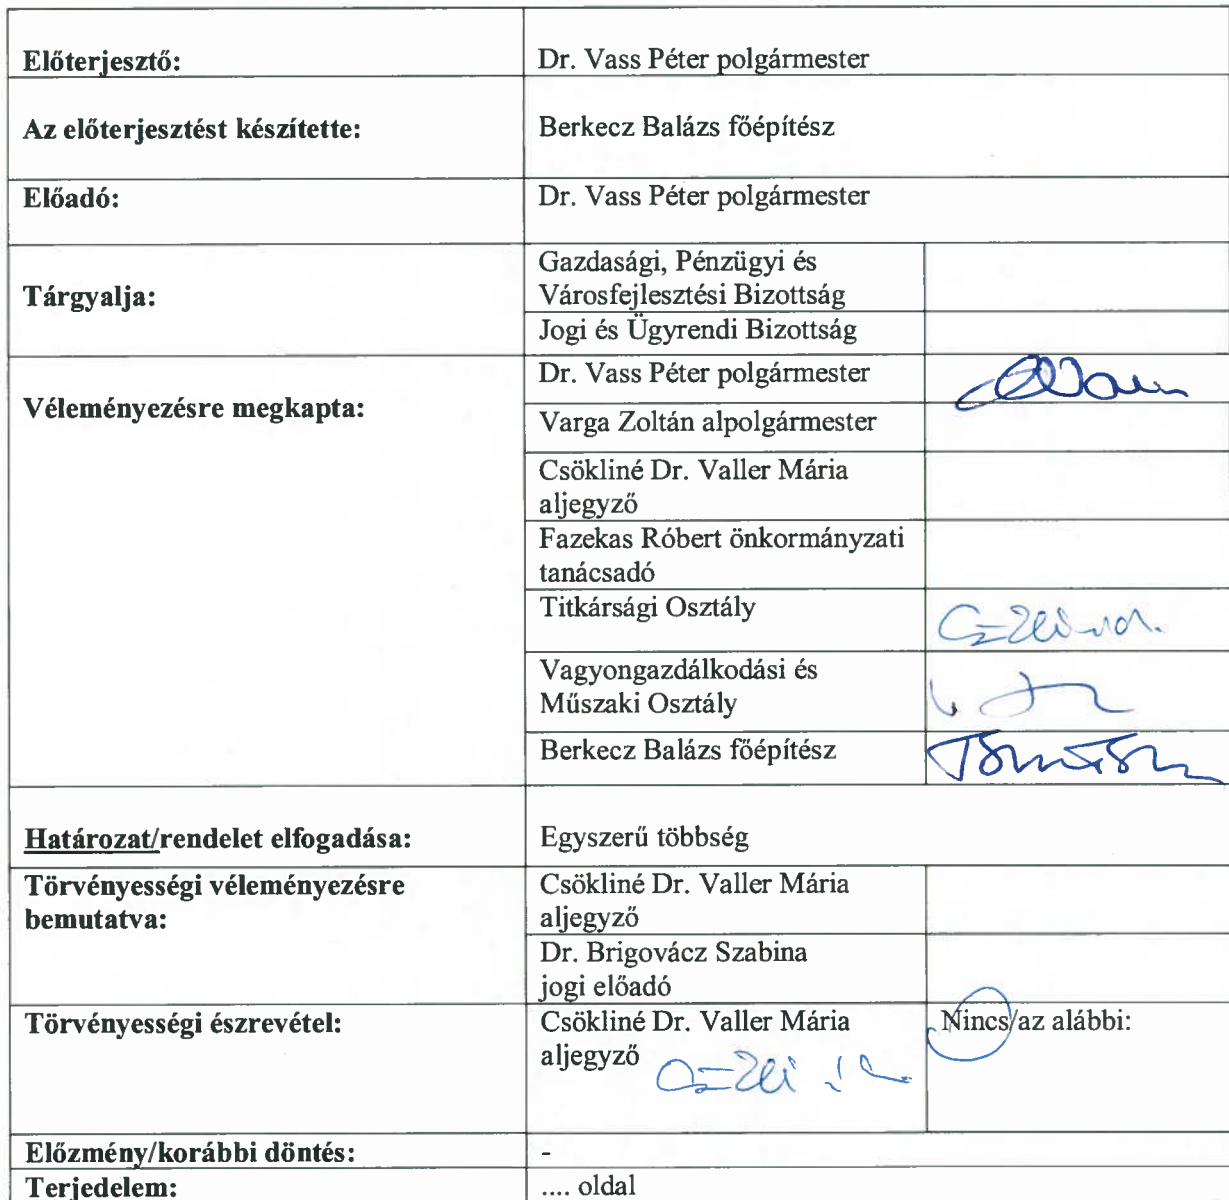 Előterjesztő:
Dr. Vass Péter polgármester
Az előterjesztést készítette:
Berkecz Balázs főépítész
Előadó:
Dr. Vass Péter polgármester
Tárgyalja:
Gazdasági, Pénzügyi és
Városfejlesztési Bizottság
Jogi és Ügyrendi Bizottság
Véleményezésre megkapta:
Dr. Vass Péter polgármester
Varga Zoltán alpolgármester
Csökliné Dr. Valler Mária
aljegyző
Fazekas Róbert önkormányzati
tanácsadó
Titkársági Osztály
Vagyongazdálkodási és
Műszaki Osztály
Berkecz Balázs főépítész
Határozat/rendelet elfogadása:
Egyszerű többség
Törvényességi véleményezésre
bemutatva:
Csökliné Dr. Valler Mária
aljegyző
Dr. Brigovácz Szabina
jogi előadó
Törvényességi észrevétel:
Csökliné Dr. Valler Mária
aljegyző
Nincs/az alábbi:
Előzmény/korábbi döntés:
-
Terjedelem:
.... oldal